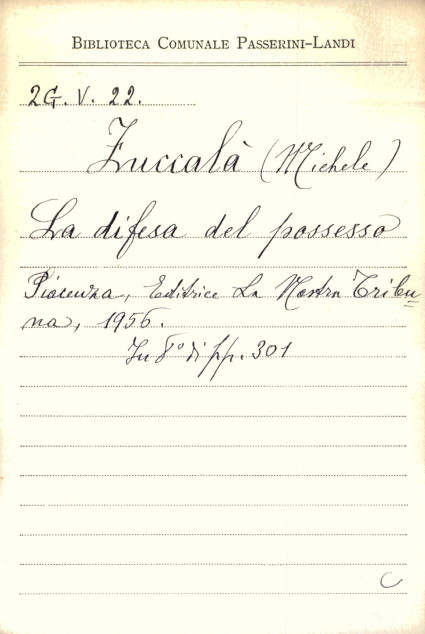 BIBLIOTECA COMUNALE PASSERINI-LANDI
2G. V. 22.
Zuccalà (Michele)
La difesa del possesso
Piacenza, Editrice La Nostra Tribu=
na, 1956.
In 8° di pp. 301
C